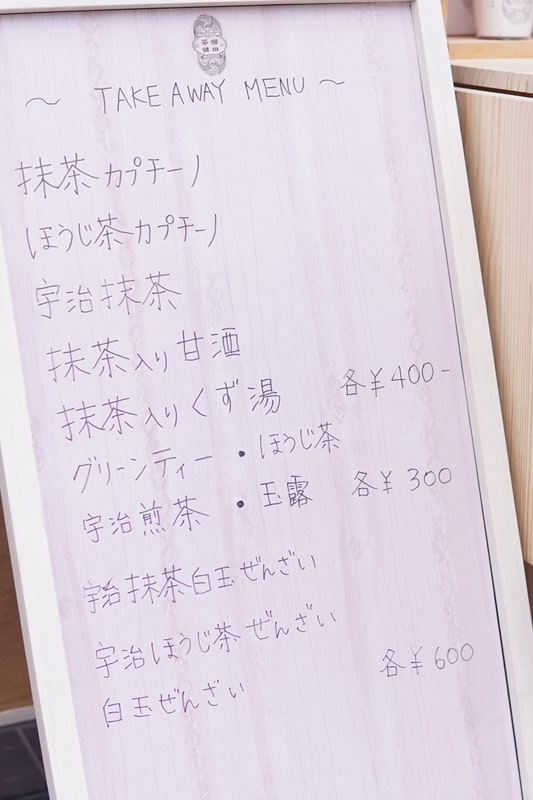 ～ TAKE AWAY MENU ～
抹茶カプチーノ
ほうじ茶カプチーノ
宇治抹茶
抹茶入り甘酒
抹茶入りくず湯 各¥400-
グリーンティー・ほうじ茶
宇治煎茶・玉露 各¥300
宇治抹茶白玉ぜんざい
宇治ほうじ茶ぜんざい
白玉ぜんざい 各¥600